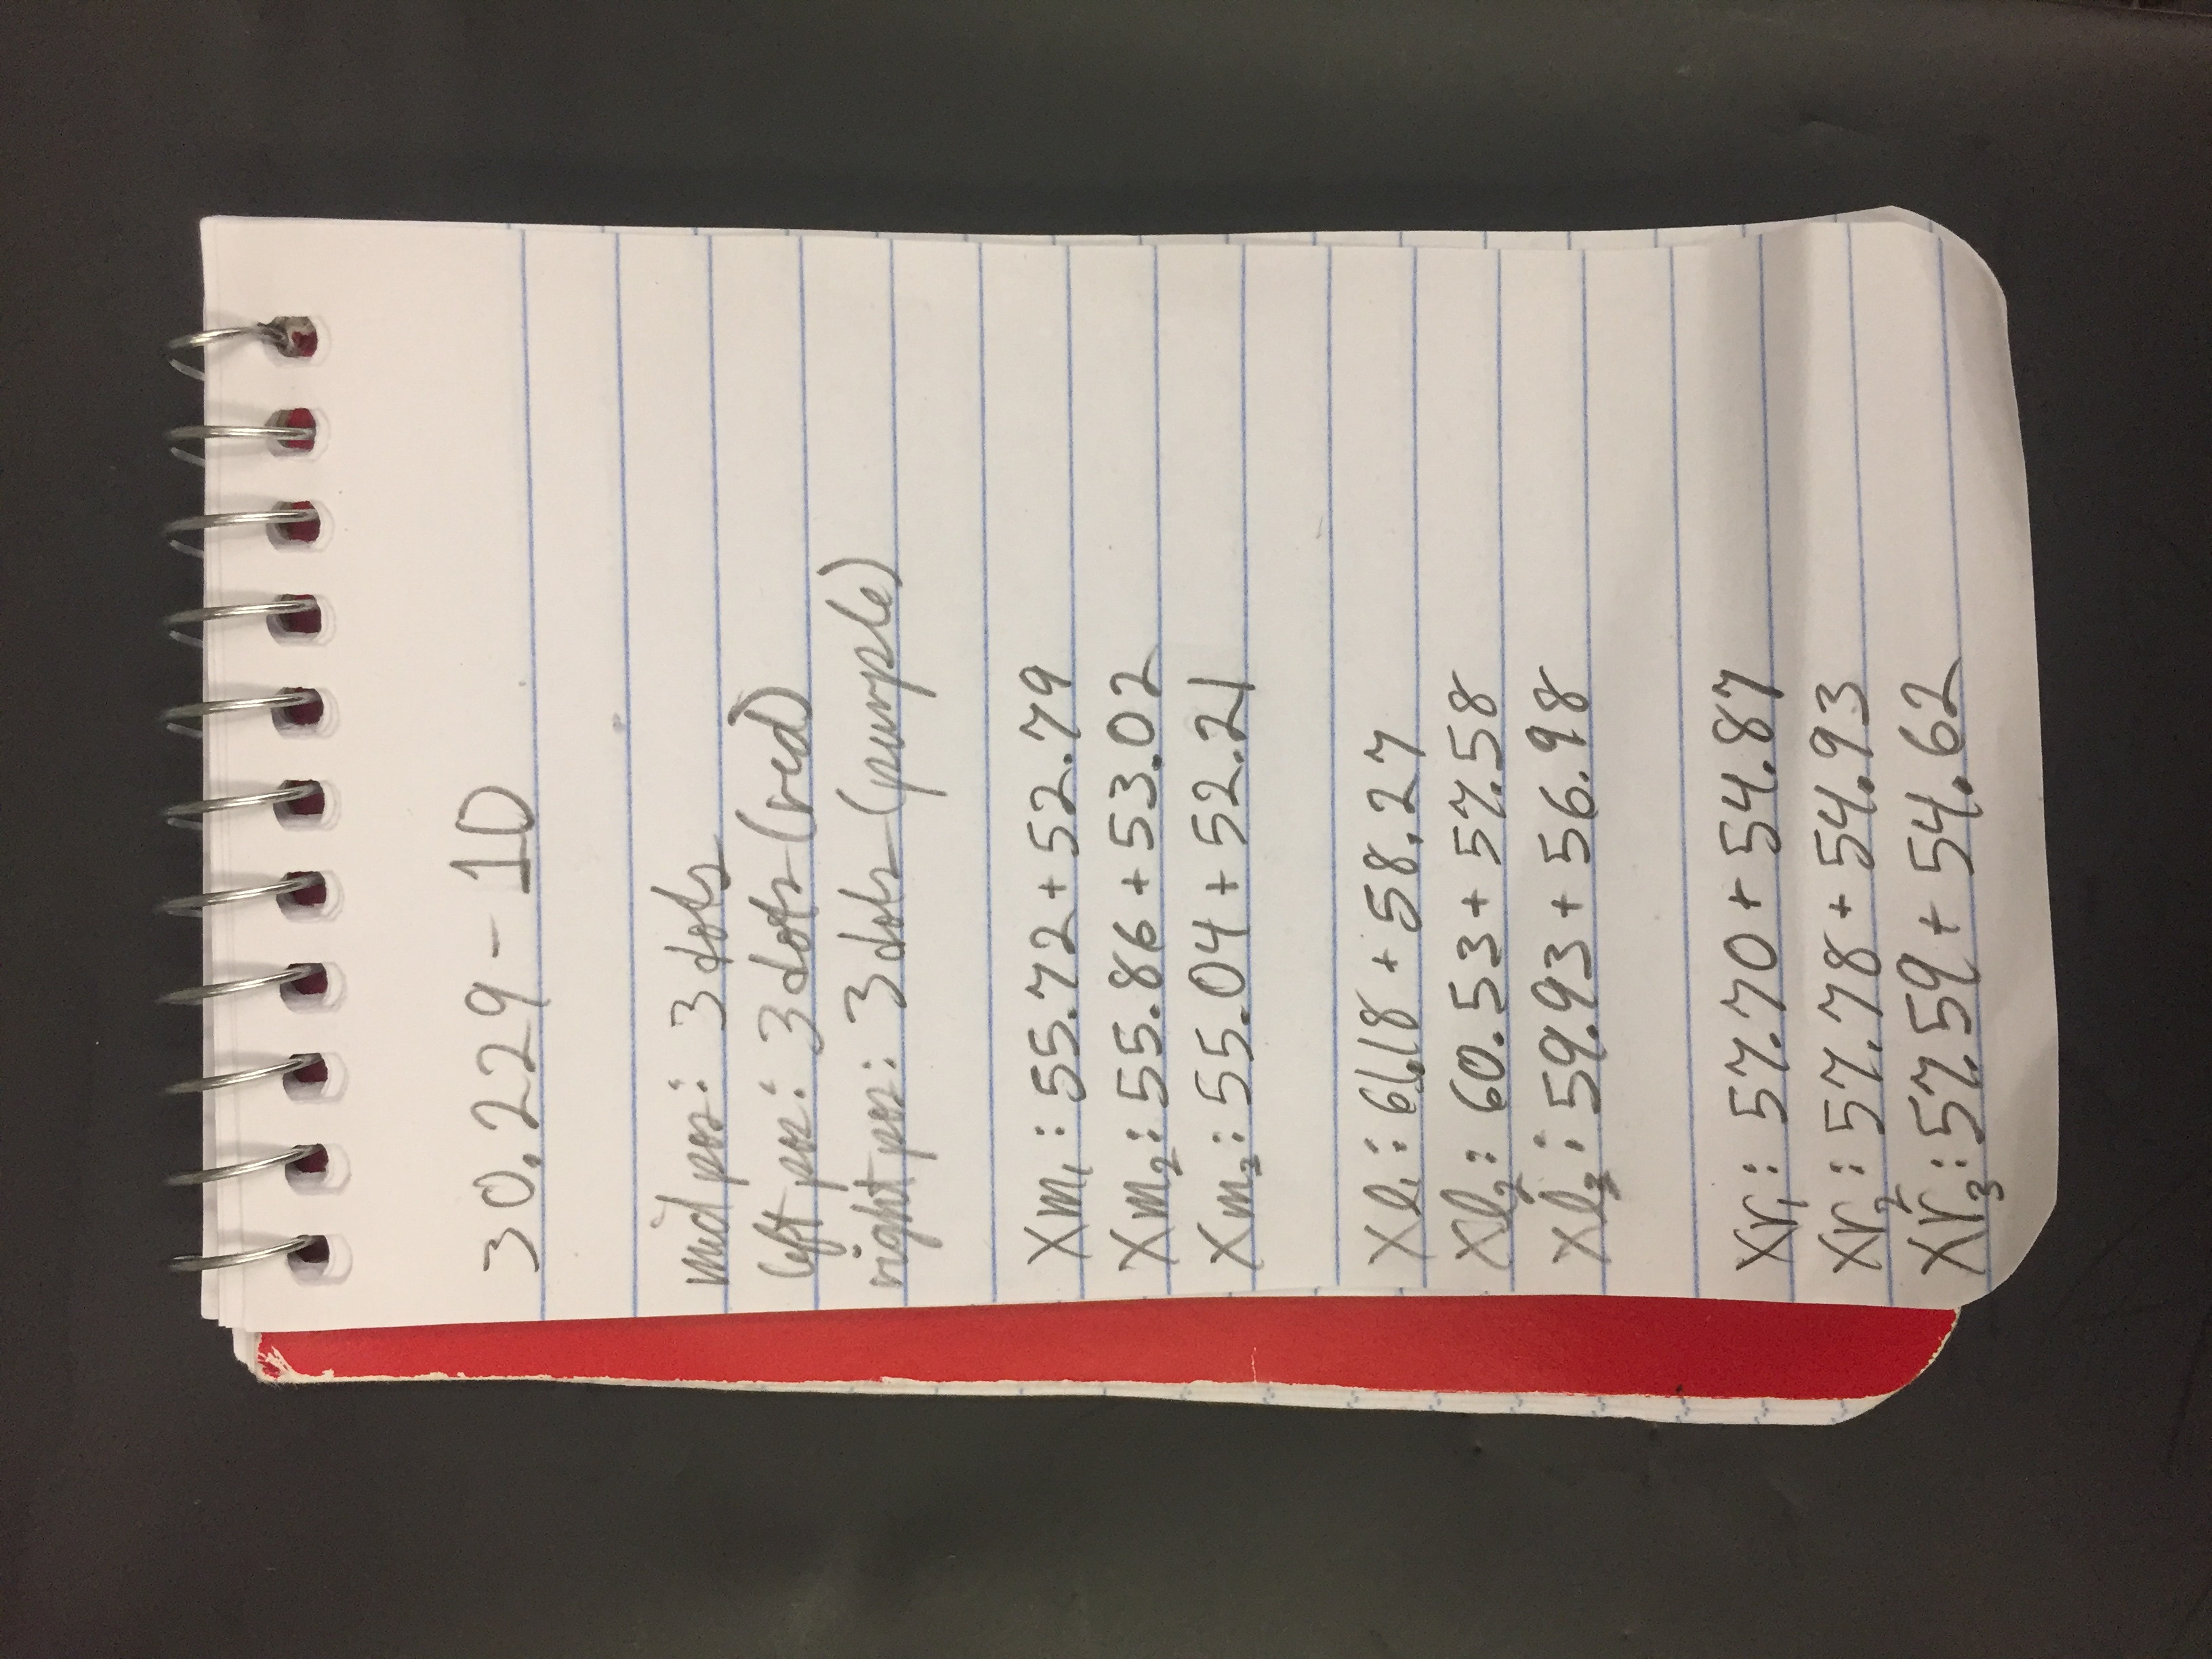 30.229-10
mid pos: 3 dots
left pos: 3 dots (red)
right pos: 3 dots (purple)
Xm₁: 55.72+52.79
Xm₂: 55.86+53.02
Xm₃: 55.04+52.21
Xl₁: 61.18+58.27
Xl₂: 60.53+57.58
Xl₃: 59.93+56.98
Xr₁: 57.70+54.87
Xr₂: 57.78+54.93
Xr₃: 57.59+54.62